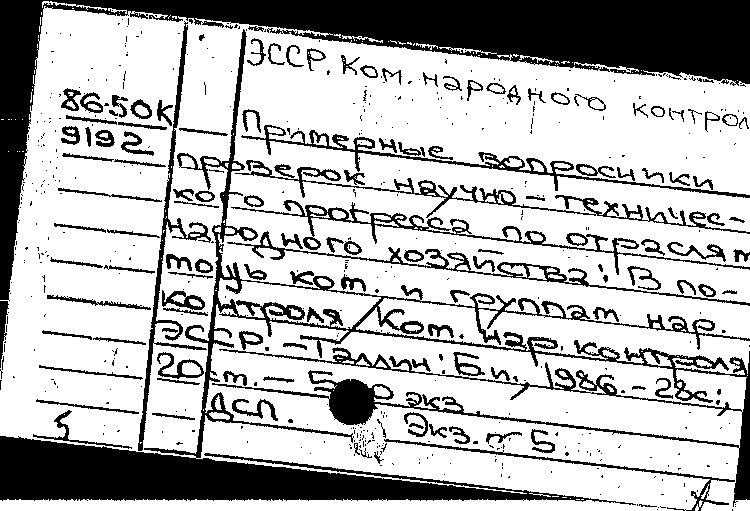 ЭССР. Ком. народного контрол
86-50К
9192
Примерные вопросники
проверок научно-техничес-
кого прогресса по отраслям
народного хозяйства: В по-
мощь ком. и группам нар.
контроля / Ком. нар. контроля
ЭССР. - Таллин: Б.и., 1986. - 28с.;
20см. - 5 0 экз.
ДСП. Экз. № 5.
5